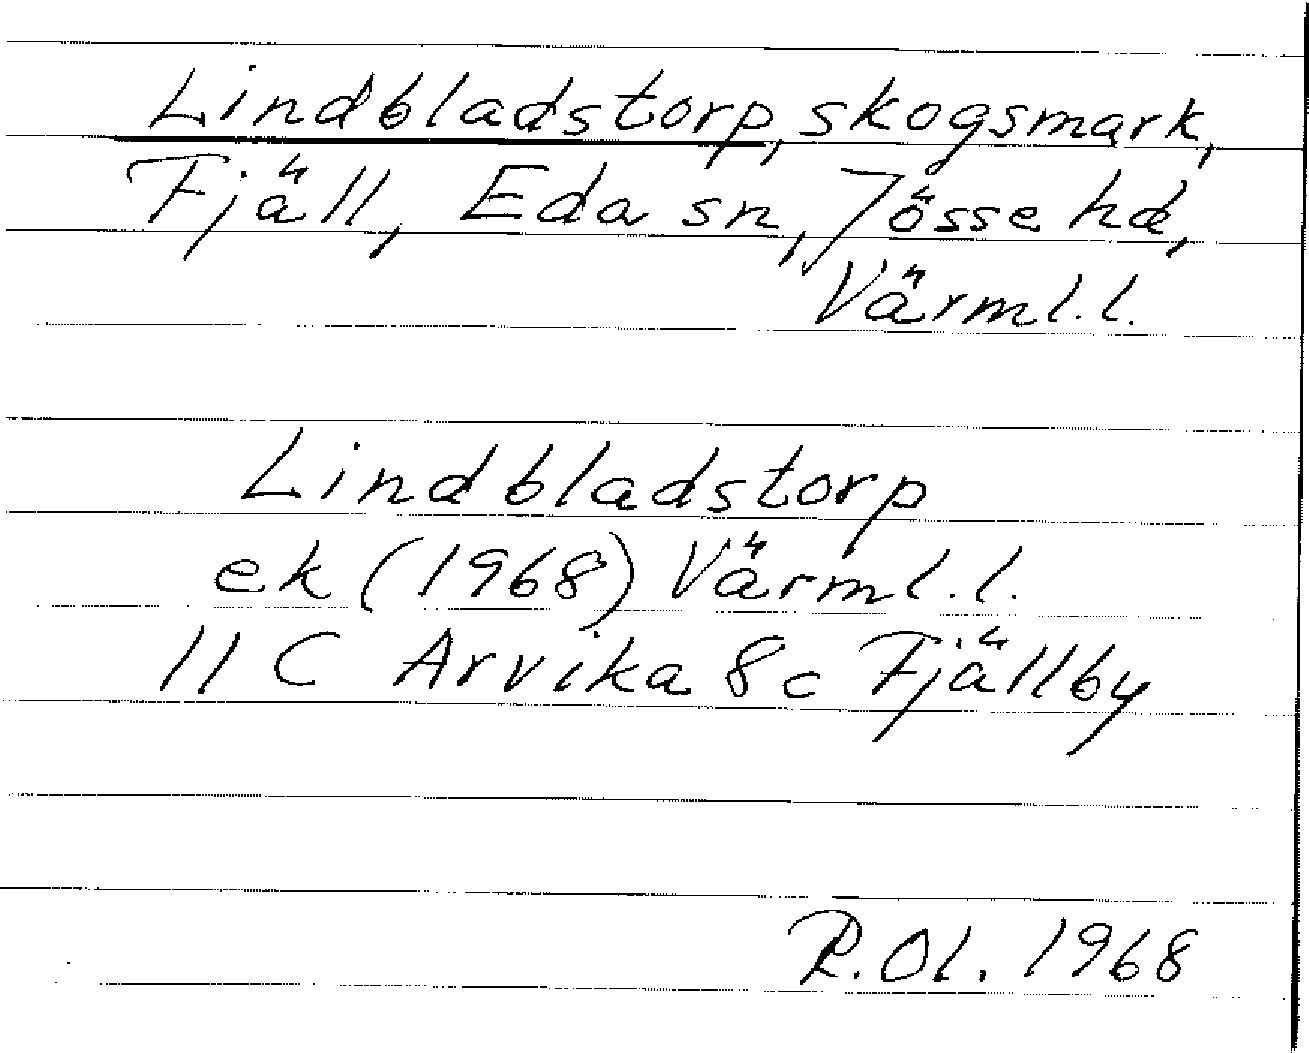 Lindbladstorp, skogsmark,
Fjäll, Eda sn, Jösse hd,
Värml.l.
Lindbladstorp
ek (1968) Värml.l.
11 C Arvika 8c Fjällby
R.Ol. 1968